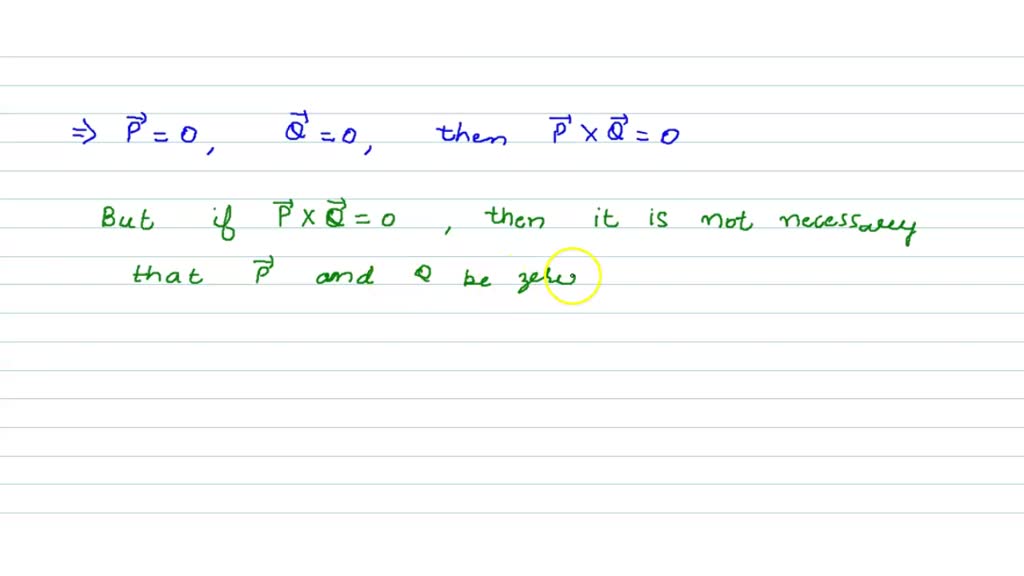 ⇒ P⃗ = 0, Q⃗ = 0, then P⃗ × Q⃗ = 0
But if P⃗ × Q⃗ = 0, then it is not necessary
that P⃗ and Q be zero